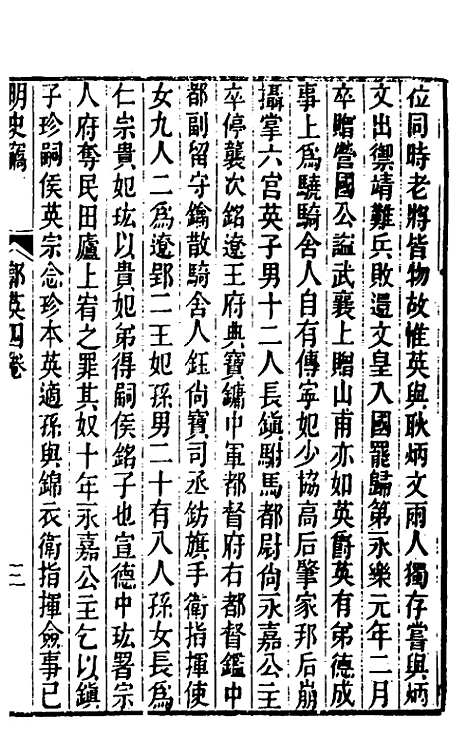 位同時老將皆物故惟英與耿炳文兩人獨存嘗與炳
文出禦靖難兵敗還文皇入國罷歸第永樂元年二月
卒贈營國公謚武襄上贈山甫亦如英爵英有弟德成
事上爲驍騎舍人自有傳寧妃少協高后肇家邦后崩
攝掌六宮英子男十二人長鎮駙馬都尉尙永嘉公主
卒停襲次銘遼王府典寶鏞中軍都督府右都督鑑中
都副留守鑰散騎舍人鈺尙寶司丞鈁旗手衛指揮使
女九人二爲遼郢二王妃孫男二十有八人孫女長爲
仁宗貴妃玹以貴妃弟得嗣侯銘子也宣德中玹署宗
人府奪民田廬上宥之罪其奴十年永嘉公主乞以鎮
子珍嗣侯英宗念珍本英適孫與錦衣衛指揮僉事已
明史竊 郭英四卷 二